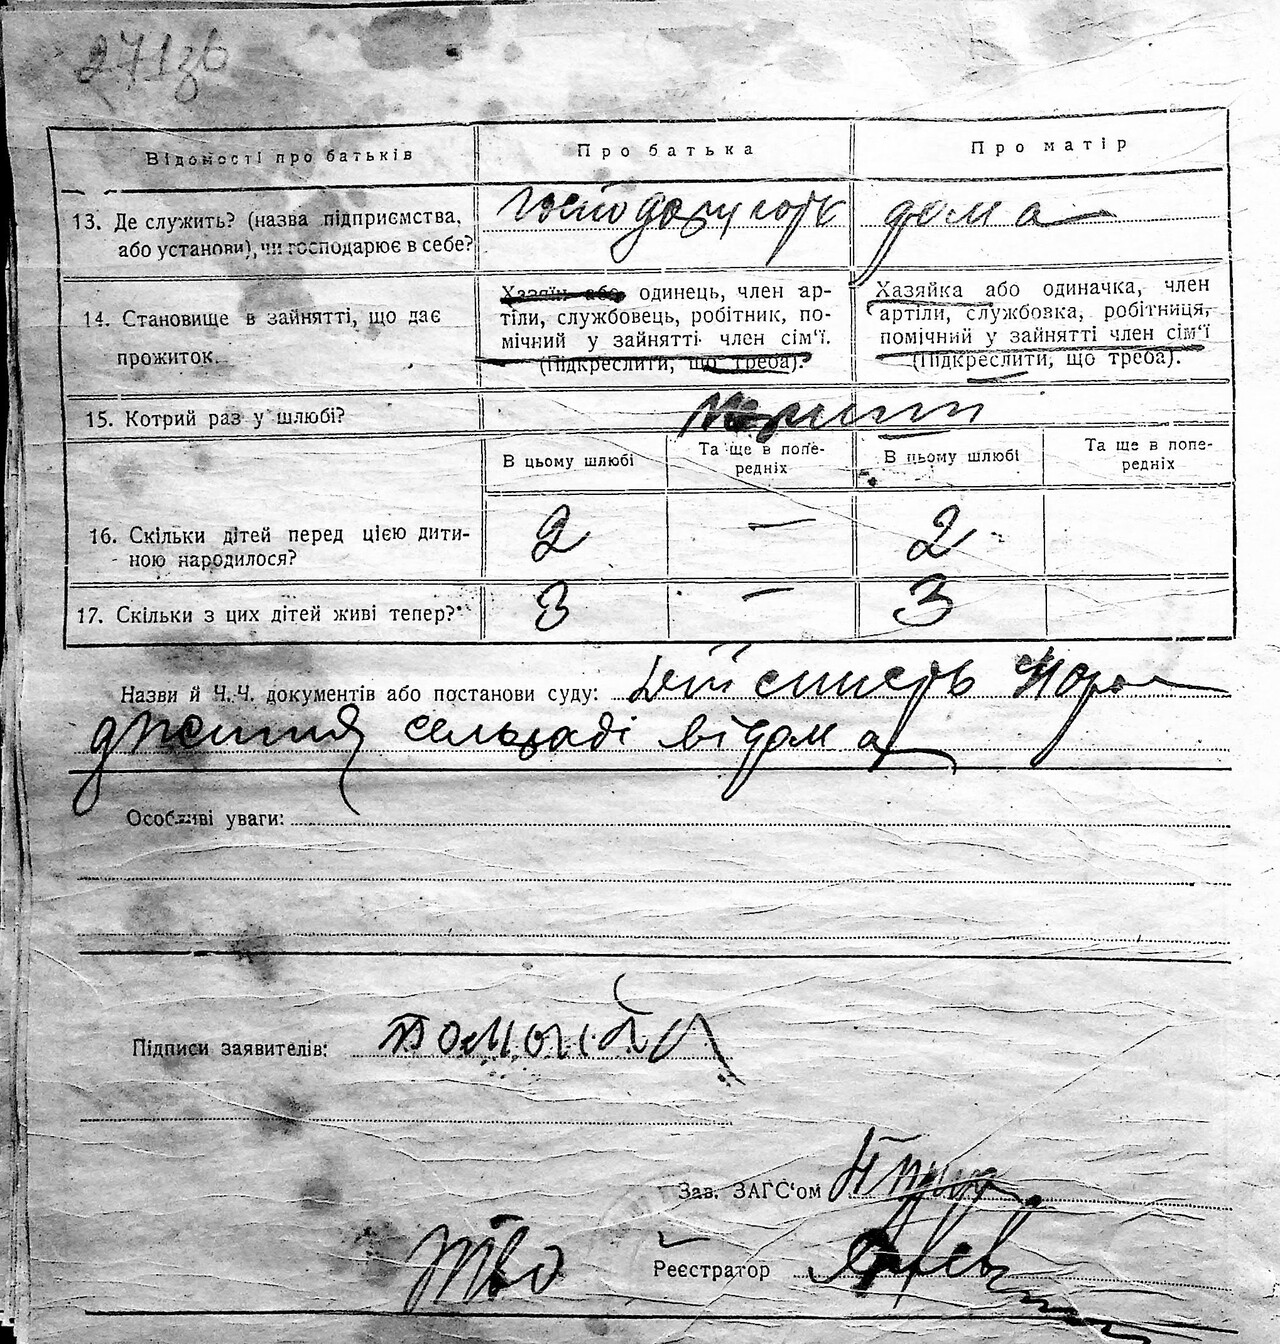 271зв
Відомості про батьків Про батька Про матір
13. Де служить? (назва підприємства, або установи), чи господарює в себе? господарюють дома
14. Становище в зайнятті, що дає прожиток.
Хазяїн або одинець, член ар-
тіли, службовець, робітник, по-
мічний у зайнятті член сім'ї.
(Підкреслити, що треба).
Хазяйка або одиначка, член
артіли, службовка, робітниця,
помічний у зайнятті член сім'ї
(Підкреслити, що треба).
15. Котрий раз у шлюбі?
В цьому шлюбі Та ще в попе-редніх В цьому шлюбі Та ще в попе-редніх
16. Скільки дітей перед цією дити-
ною народилося? 2 — 2
17. Скільки з цих дітей живі тепер? 3 — 3
Назви й Ч.Ч. документів або постанови суду: Дійсність Наро
дження сельраді відома
Особливі уваги:
Підписи заявителів:
Зав. ЗАГС'ом
Реєстратор